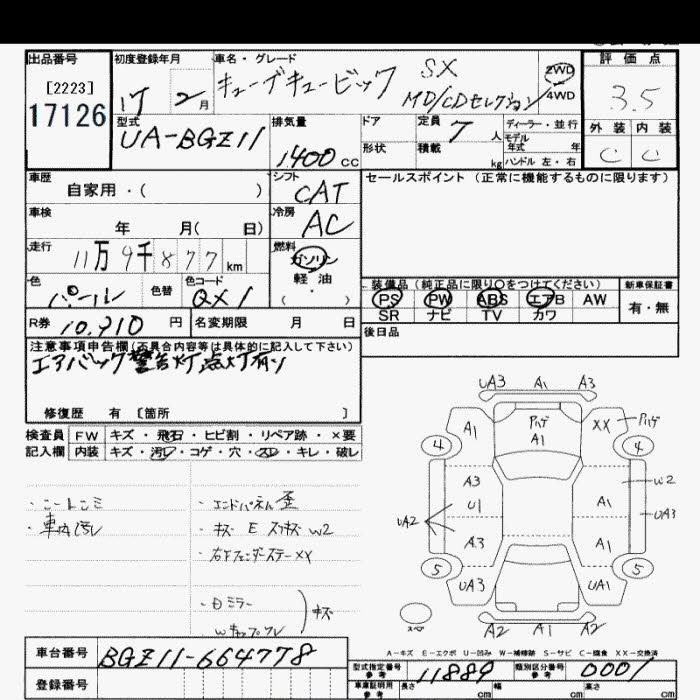 出品番号
[2223]
17126
初度登録年月
17 2 月
車名・グレード
キューブキュービック SX
MD/CDセレクション
2WD
4WD
評価点
3.5
外装 内装
C C
型式
UA-BGZ11
排気量
1400 cc
ドア
形状
定員
7 人
積載
kg
ディーラー・並行
モデル
年式 年
ハンドル 左・右
車歴
自家用・( )
シフト
CAT
セールスポイント (正常に機能するものに限ります)
車検
年 月( 日)
冷房
AC
走行
11万 9千 877 km
燃料
ガソリン
軽油
( ・ )
色
パール
色替
色コード
QX1
装備品 (純正品に限り○をつけてください)
PS PW ABS エアB AW
SR ナビ TV カワ
新車保証書
有・無
R券 10,910 円
名変期限 月 日
後日品
注意事項申告欄 (不具合内容等は具体的に記入して下さい)
エアバック警告灯点灯有り
修復歴 有 〔箇所 〕
検査員
記入欄
FW キズ・飛石・ヒビ割・リペア跡・×要
内装 キズ・汚レ・コゲ・穴・スレ・キレ・破レ
・車内汚レ
・エンドパネル歪
・キズ E W2
・右Fフェンダーステー XY
・Dミラー
キズ
UA3 A1 A3
A1
ハゲ
A1
XX
ハゲ
4
4
A3
U1
UA2
A3
A1
A1
W2
UA3
5
5
UA3
UA1
A2 A1 A2
A-キズ E-エクボ U-凹み W-補修跡 S-サビ C-腐食 XX-交換済
車台番号
BGZ11-664778
登録番号
型式指定番号
参考
11889
類別区分番号
参考
0001
車庫証明用
参考
長さ cm
幅 cm
高さ cm